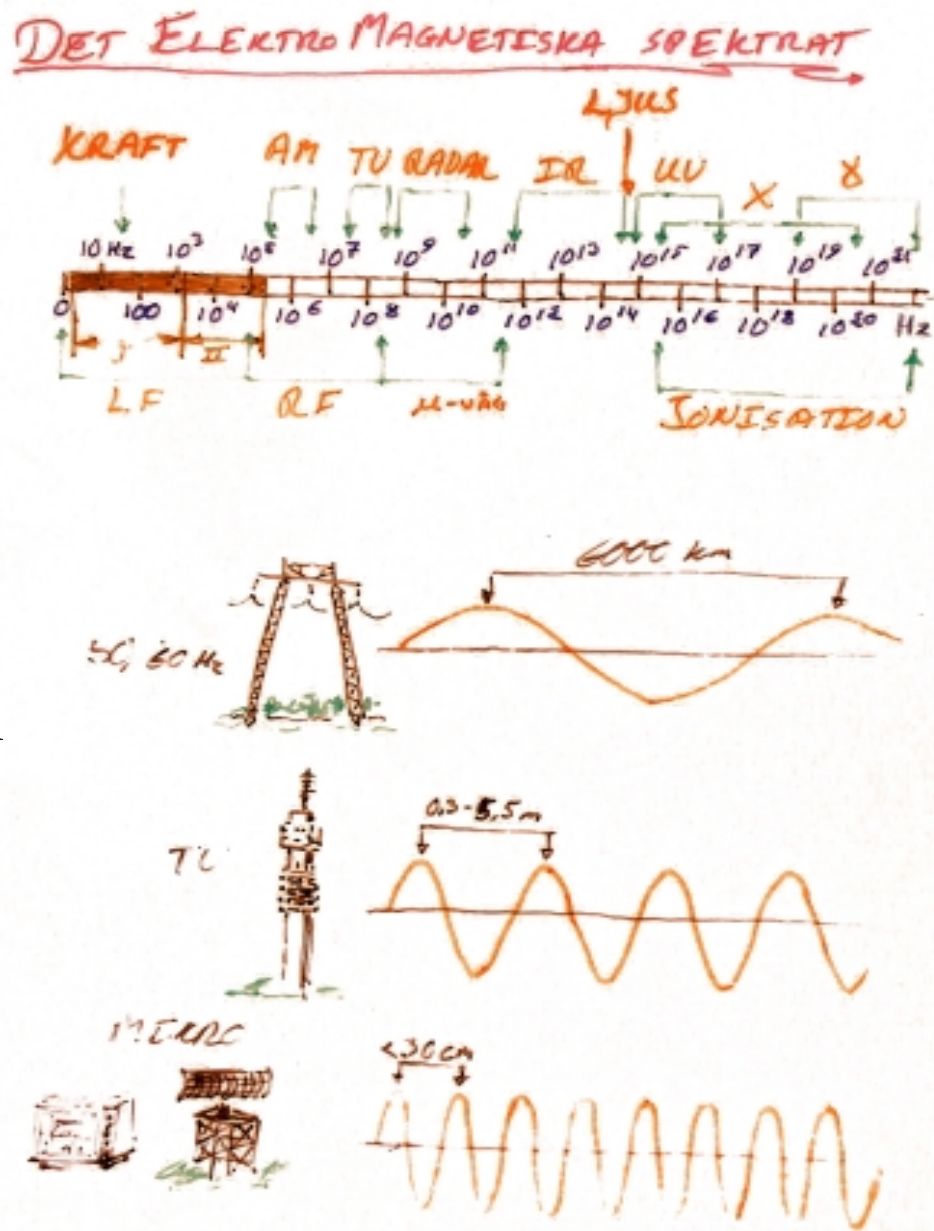 DET ELEKTROMAGNETISKA SPEKTRAT
LJUS
KRAFT AM TV RADAR IR UV X γ
10 Hz 10³ 10⁵ 10⁷ 10⁹ 10¹¹ 10¹³ 10¹⁵ 10¹⁷ 10¹⁹ 10²¹
0 100 10⁴ 10⁶ 10⁸ 10¹⁰ 10¹² 10¹⁴ 10¹⁶ 10¹⁸ 10²⁰ Hz
I II
LF RF μ-VÅG JONISATION
6000 km
50, 60 Hz
0,3-5,5m
TV
MIKRO
<30cm